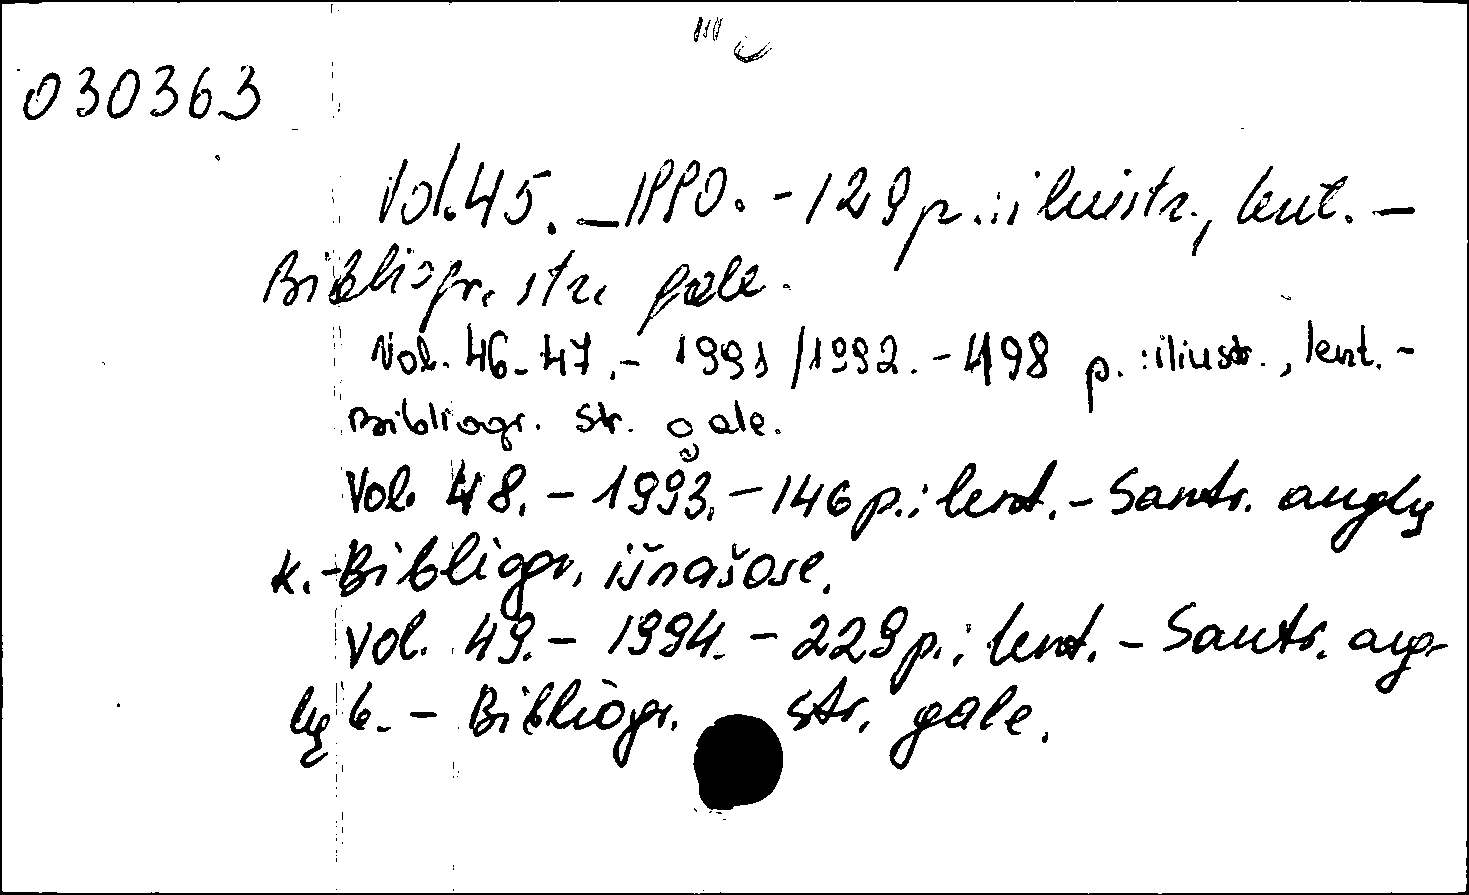 030363
Vol. 45. – 1990. – 129 p. : iliustr., lent. –
Bibliogr. str. gale.
Vol. 46-47. – 1991/1992. – 498 p. : iliustr., lent. –
Bibliogr. str. gale.
Vol. 48. – 1993. – 146 p. : lent. – Santr. anglų
k. – Bibliogr. išnašose.
Vol. 49. – 1994. – 229 p. : lent. – Santr. ang-
lų k. – Bibliogr. str. gale.